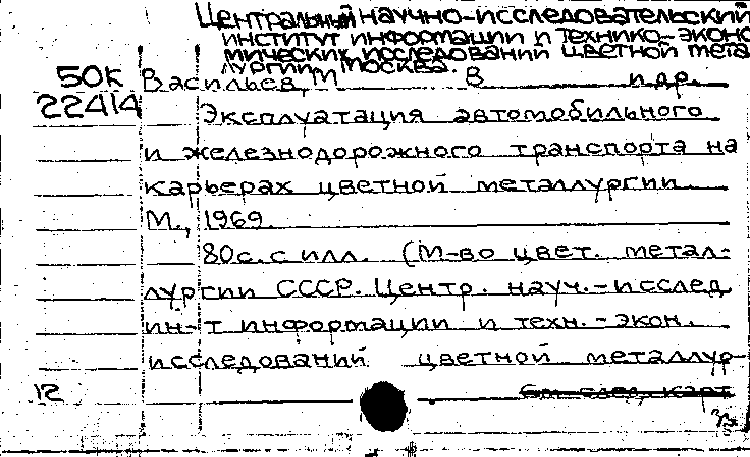 Центральный научно-исследовательский
институт информации и технико-эконо
мических исследований цветной метал
лургии, Москва.
50К Васильев, М В и др.
22414 Эксплуатация автомобильного
и железнодорожного транспорта на
карьерах цветной металлургии.
М., 1969.
80с. с илл. (М-во цвет. метал-
лургии СССР. Центр. науч.-исслед
ин-т информации и техн.-экон.
исследований цветной металлур-
12 См. след. карт